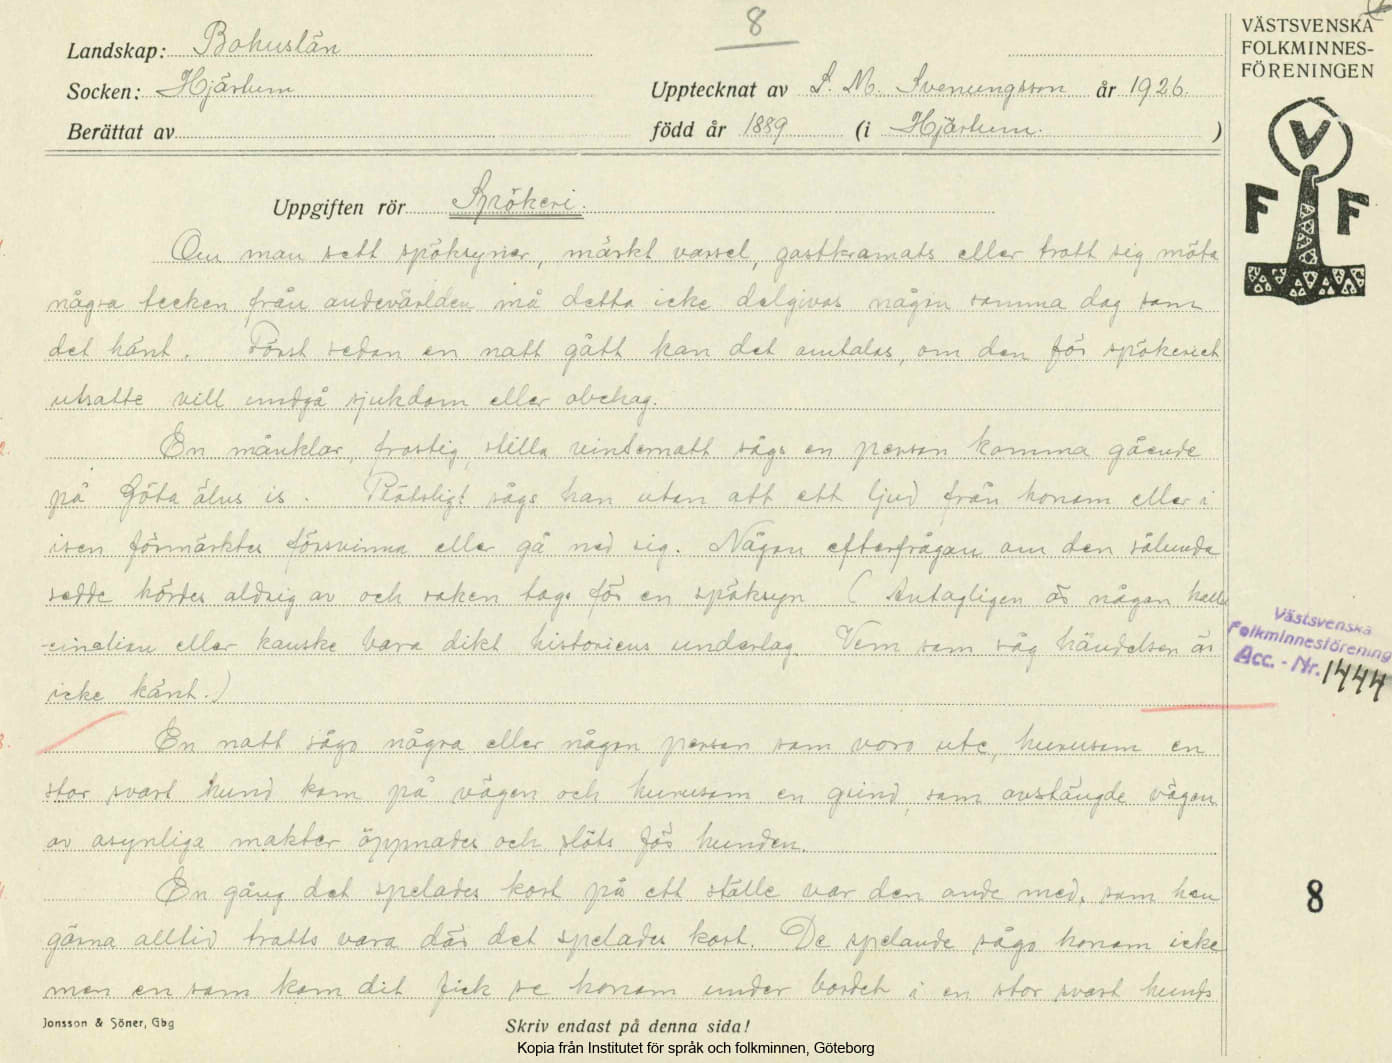 8
VÄSTSVENSKA
FOLKMINNES-
FÖRENINGEN
Landskap: Bohuslän
Socken: Hjärtum
Upptecknat av S. M. Svenungsson år 1926.
Berättat av
född år 1889 (i Hjärtum. )
V
F F
Uppgiften rör Spökeri.
Om man sett spöksyner, märkt varsel, gastkramats eller trott sig möta
några tecken från andevärlden må detta icke delgivas någon samma dag som
det hänt. Först sedan en natt gått kan det omtalas, om den för spökeriet
utsatte vill undgå sjukdom eller obehag.
En månklar, frostig, stilla vinternatt sågs en person komma gående
på Göta älvs is. Plötsligt sågs han utan att ett ljud från honom eller i
isen förmärktes försvinna eller gå ned sig. Någon efterfrågan om den sålunda
sedde hördes aldrig av och saken togs för en spöksyn (Antagligen är någon hallu
-cination eller kanske bara dikt historiens underlag. Vem som såg händelsen är
icke känt.)
Västsvenska
Folkminnesförening
Acc. - Nr. 1444
En natt sågo några eller någon person som voro ute, hurusom en
stor svart hund kom på vägen och hurusom en grind, som avstängde vägen
av osynliga makter öppnades och slöts för hunden.
En gång det spelades kort på ett ställe var den onde med, som han
gärna alltid trotts vara där det spelades kort. De spelande sågo honom icke
men en som kom dit fick se honom under bordet i en stor svart hunds
8
Jonsson & Söner, Gbg
Skriv endast på denna sida!
Kopia från Institutet för språk och folkminnen, Göteborg